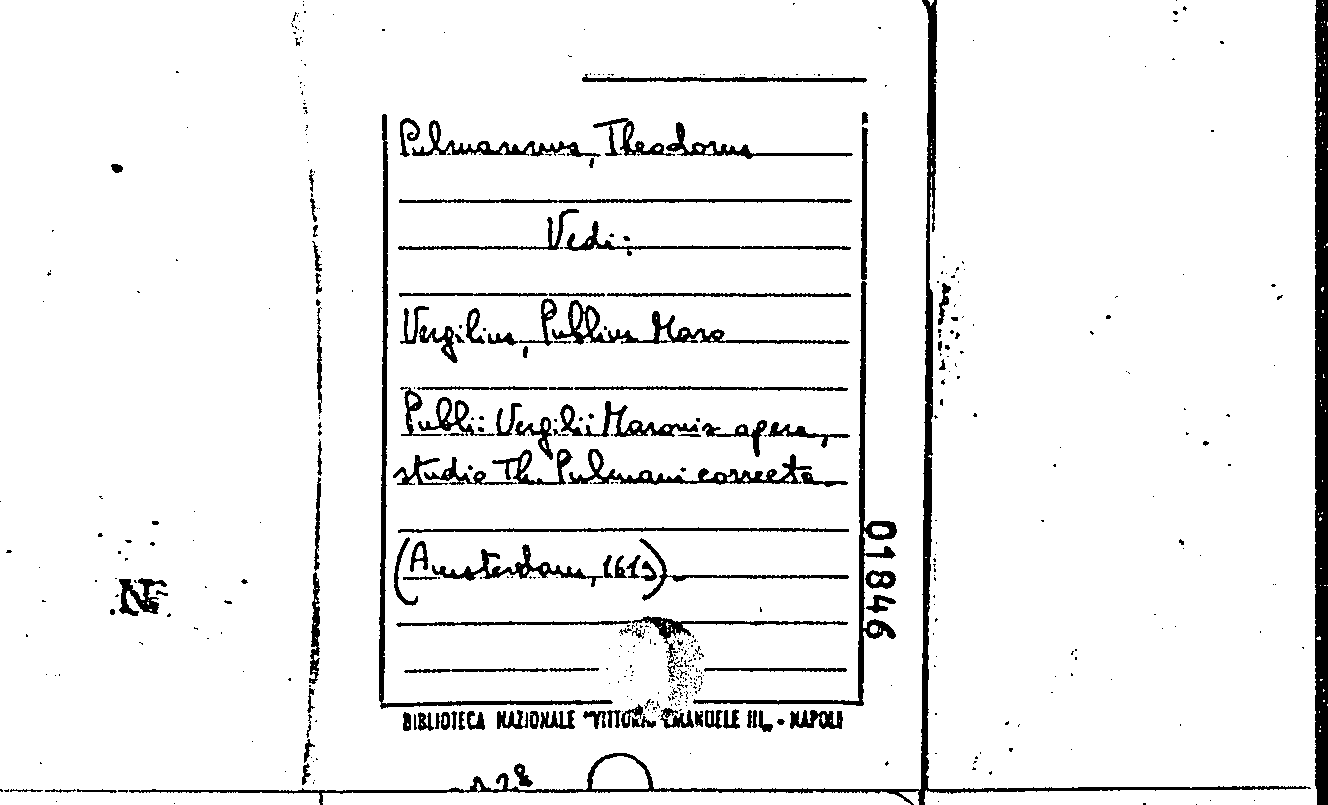 Pulmannus, Theodorus
Vedi:
Vergilius, Publius Maro
Publii Vergilii Maronis opera,
studio Th. Pulmani correcta.
(Amsterdam, 1619).
01846
BIBLIOTECA NAZIONALE "VITTORIO EMANUELE III„ - NAPOLI